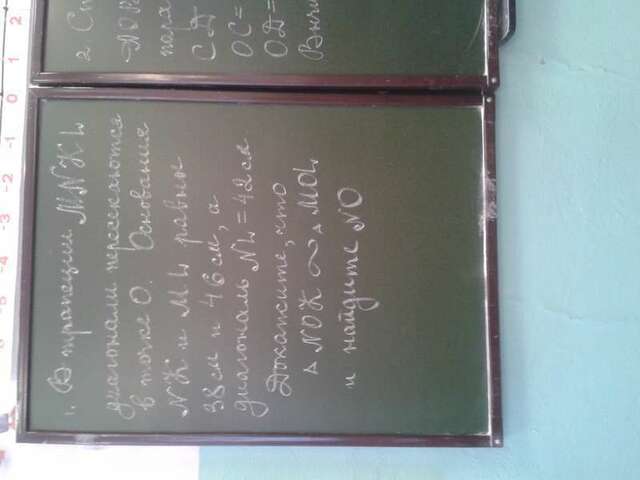 1. В трапеции MNKL
диагонали пересекаются
в точке О. Основания
NK и ML равны
38см и 46 см, а
диагональ NL = 42см
Докажите, что
△ NOK ∼ △ MOL
и найдите NO
2
пер
СД
ОС =
ОД =
2
1
0
-1
-2
-3
-4
-5